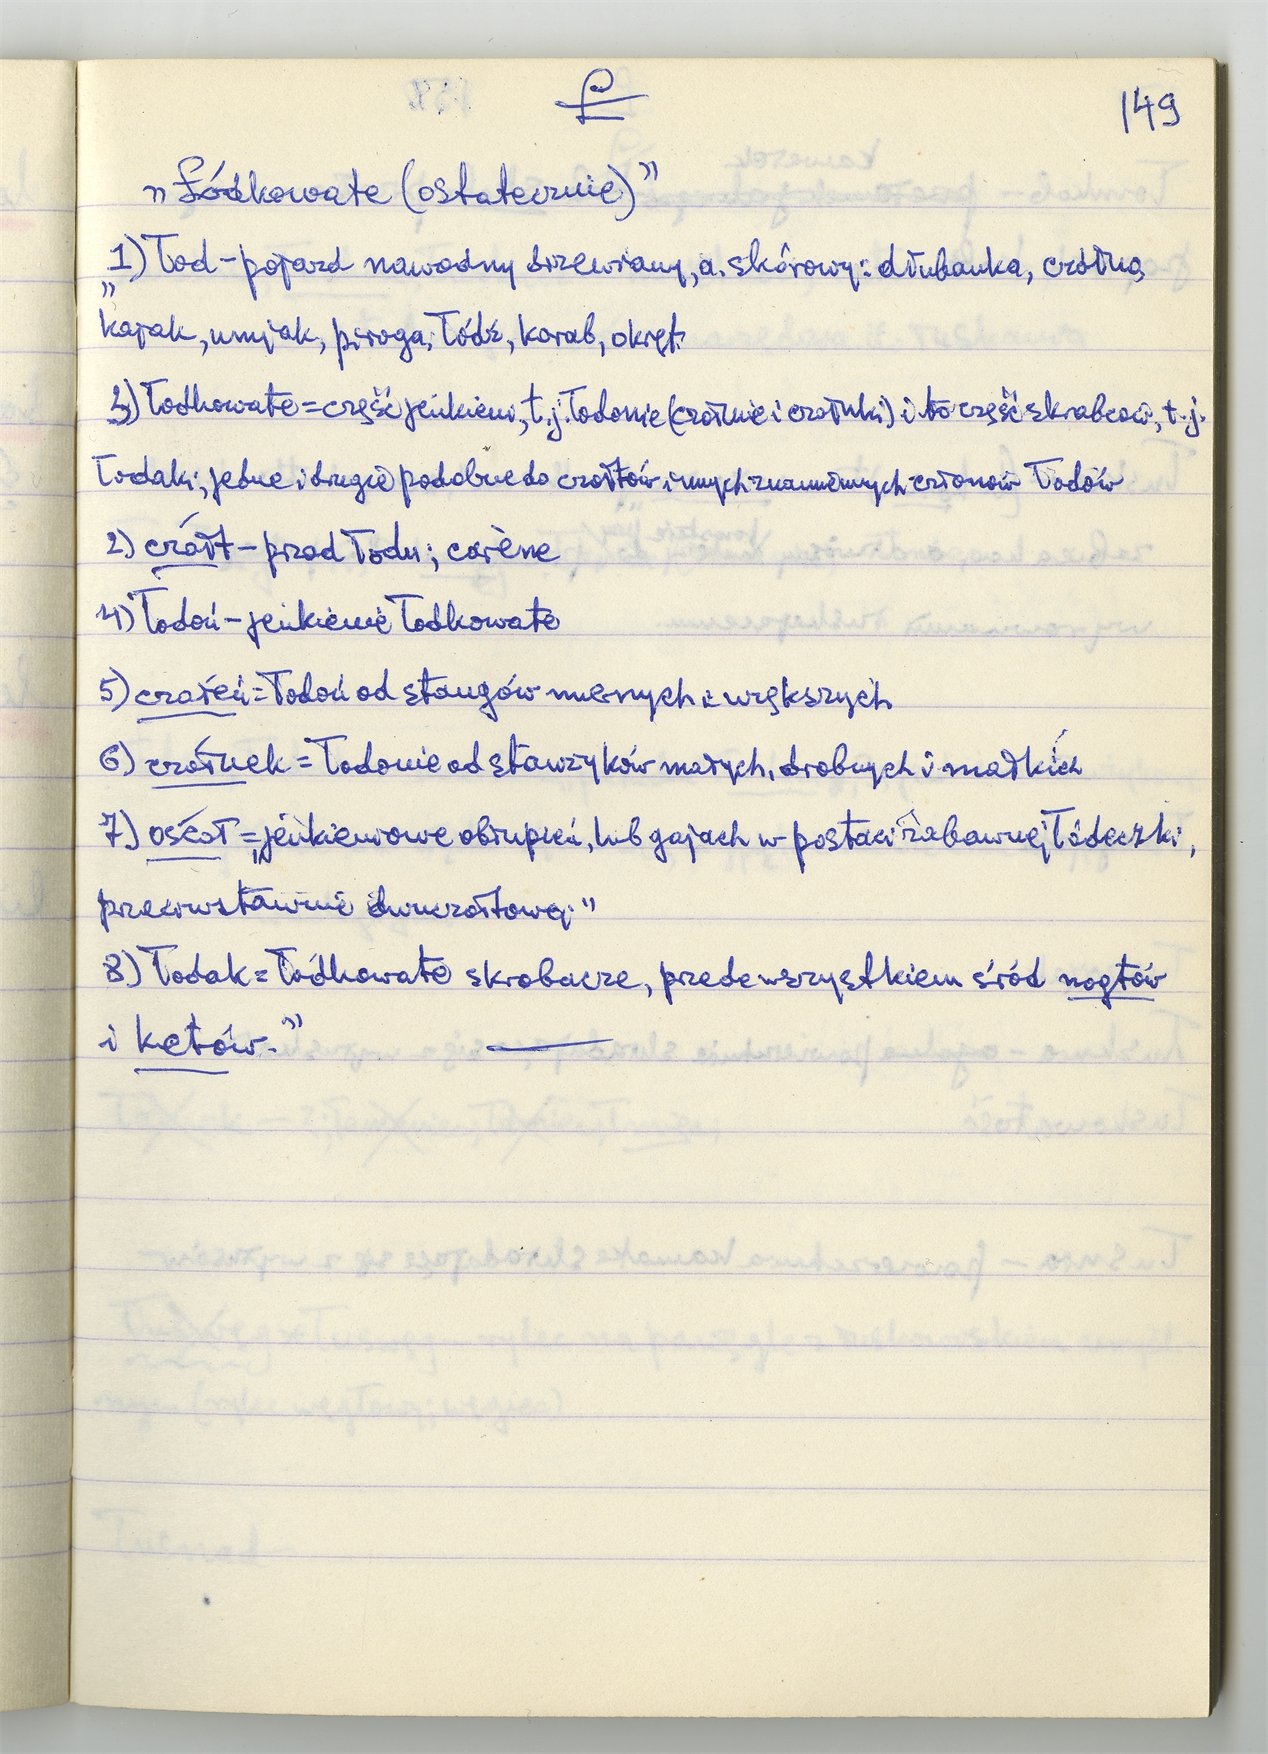 Ł
149
„Łódkowate (ostatecznie)”
1) Łod – pojazd nawodny drzewiany, a. skórowy: dłubanka, czółno,
„kajak, umjak, piroga, łódź, korab, okręt.
3) Łodkowate = część jeńkiem, t. j. łodonie (czołnie i czołnki) i to część skrabcow, t. j.
łodaki; jedne i drugie podobne do czołtów i innych znamiennych członów łodów
2) czółt – przod łodu; carène
4) Łodoń – jeńkienie łodkowate
5) czołeń = łodoń od stangów miernych i większych
6) czółnek = łodonie od stawzyków małych, drobnych i małkich
7) oścoł = „jeńkieniowe obłupień, lub gajach w postaci zabawnej łódeczki,
przeciwstawnie dwuczołtowej.”
8) Łodak = łódkowate skrobacze, przedewszystkiem śród nogłów
i ketów.”